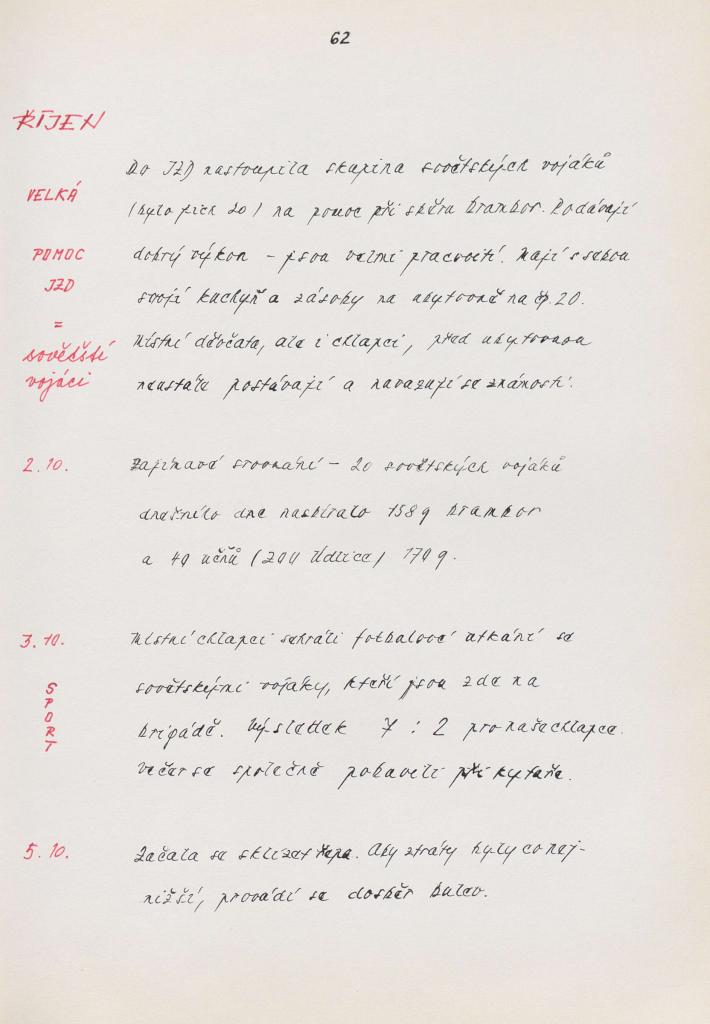 62
ŘÍJEN
Do JZD nastoupila skupina sovětských vojáků
VELKÁ
(bylo jich 20) na pomoc při sběru brambor. Podávají
POMOC
dobrý výkon – jsou velmi pracovití. Mají s sebou
JZD
svoji kuchyň a zásoby na ubytovně na čp. 20.
=
sovětští
Místní děvčata, ale i chlapci, před ubytovnou
vojáci
neustále postávají a navazují se známosti.
2.10.
Zajímavé srovnání – 20 sovětských vojáků
dnešního dne nasbíralo 158 q brambor
a 40 učňů (ZOU Údlice) 170 q.
3.10.
Místní chlapci sehráli fotbalové utkání se
SPORT
sovětskými vojáky, kteří jsou zde na
brigádě. Výsledek 7 : 2 pro naše chlapce.
Večer se společně pobavili při kytaře.
5.10.
Začala se sklízet řepa. Aby ztráty byly co nej-
nižší, provádí se dosběr bulev.